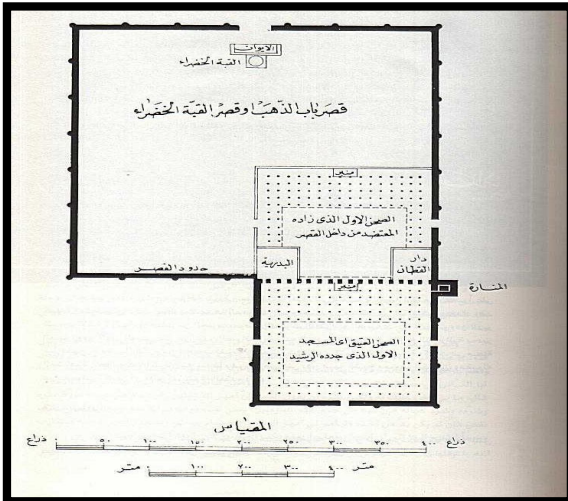 الايوان
القبة الخضراء
قصر باب الذهب او قصر القبة الخضراء
منبر
الصحن الاول الذى زاده
المعتضد من داخل القصر
دار
القطان
البدرية
حدود القصر
المنارة
منبر
الصحن العتيق اى المسجد
الاول الذى جدده الرشيد
المقياس
ذراع ٠ ٥٠ ١٠٠ ١٥٠ ٢٠٠ ٢٥٠ ٣٠٠ ٣٥٠ ٤٠٠ ذراع
متر ٠ ١٠٠ ٢٠٠ ٣٠٠ ٤٠٠ متر